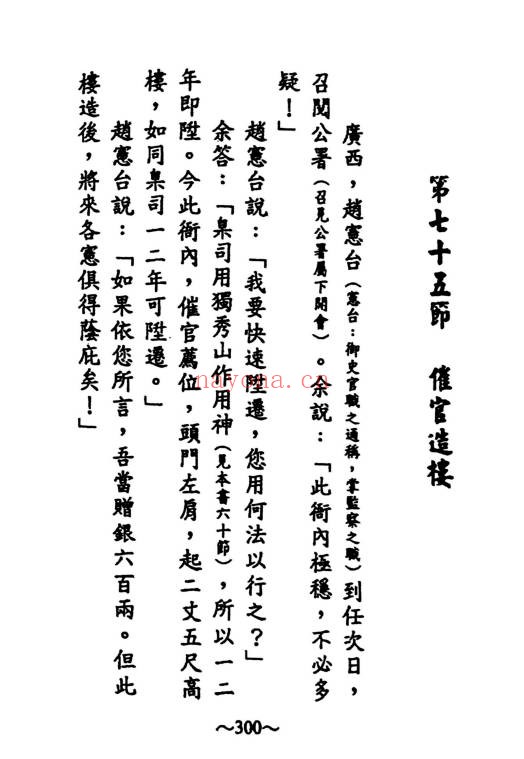 第七十五節　催官造樓
廣西，趙憲台（憲台：御史官職之通稱，掌監察之職）到任次日，
召閱公署（召見公署屬下開會）。余說：「此衙內極穩，不必多
疑！」
趙憲台說：「我要快速陞遷，您用何法以行之？」
余答：「臬司用獨秀山作用神（見本書六十節），所以一二
年即陞。今此衙內，催官薦位，頭門左肩，起二丈五尺高
樓，如同臬司一二年可陞遷。」
趙憲台說：「如果依您所言，吾當贈銀六百兩。但此
樓造後，將來各憲俱得蔭庇矣！」
～300～
nayona.cn